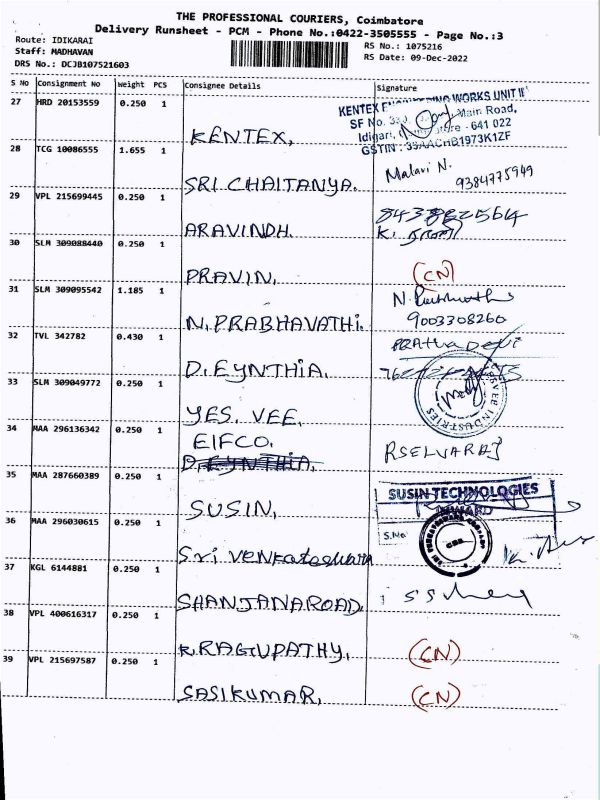 THE PROFESSIONAL COURIERS, Coimbatore
Delivery Runsheet - PCM - Phone No.:0422-3505555 - Page No.:3
Route: IDIKARAI
Staff: MADHAVAN
DRS No.: DCJB107521603
RS No.: 1075216
RS Date: 09-Dec-2022
S No Consignment No Weight PCS Consignee Details Signature
27 HRD 20153559 0.250 1 KENTEX,
KENTEX WORKS UNIT II
SF No. Main Road,
- 641 022
28 TCG 10086555 1.655 1 SRI CHAITANYA.
Malavi N.
9384775949
29 VPL 215699445 0.250 1 ARAVINDH.
K.
30 SLM 309088440 0.250 1 PRAVIN. (CN)
31 SLM 309095542 1.185 1 N. PRABHAVATHI.
N.
9003308260
32 TVL 342782 0.430 1 D. EYNTHIA.
33 SLM 309049772 0.250 1 YES. VEE.
INDUSTRIES
34 MAA 296136342 0.250 1 EIFCO.
D. EYNTHIA.
RSELVARAJ
35 MAA 287660389 0.250 1 SUSIN,
SUSIN TECHNOLOGIES
INWARD
S.No.
36 MAA 296030615 0.250 1 Sri Venkateshwara
37 KGL 6144881 0.250 1 SHANJANAROAD.
38 VPL 400616317 0.250 1 K. RAGUPATHY, (CN)
39 VPL 215697587 0.250 1 SASIKUMAR, (CN)